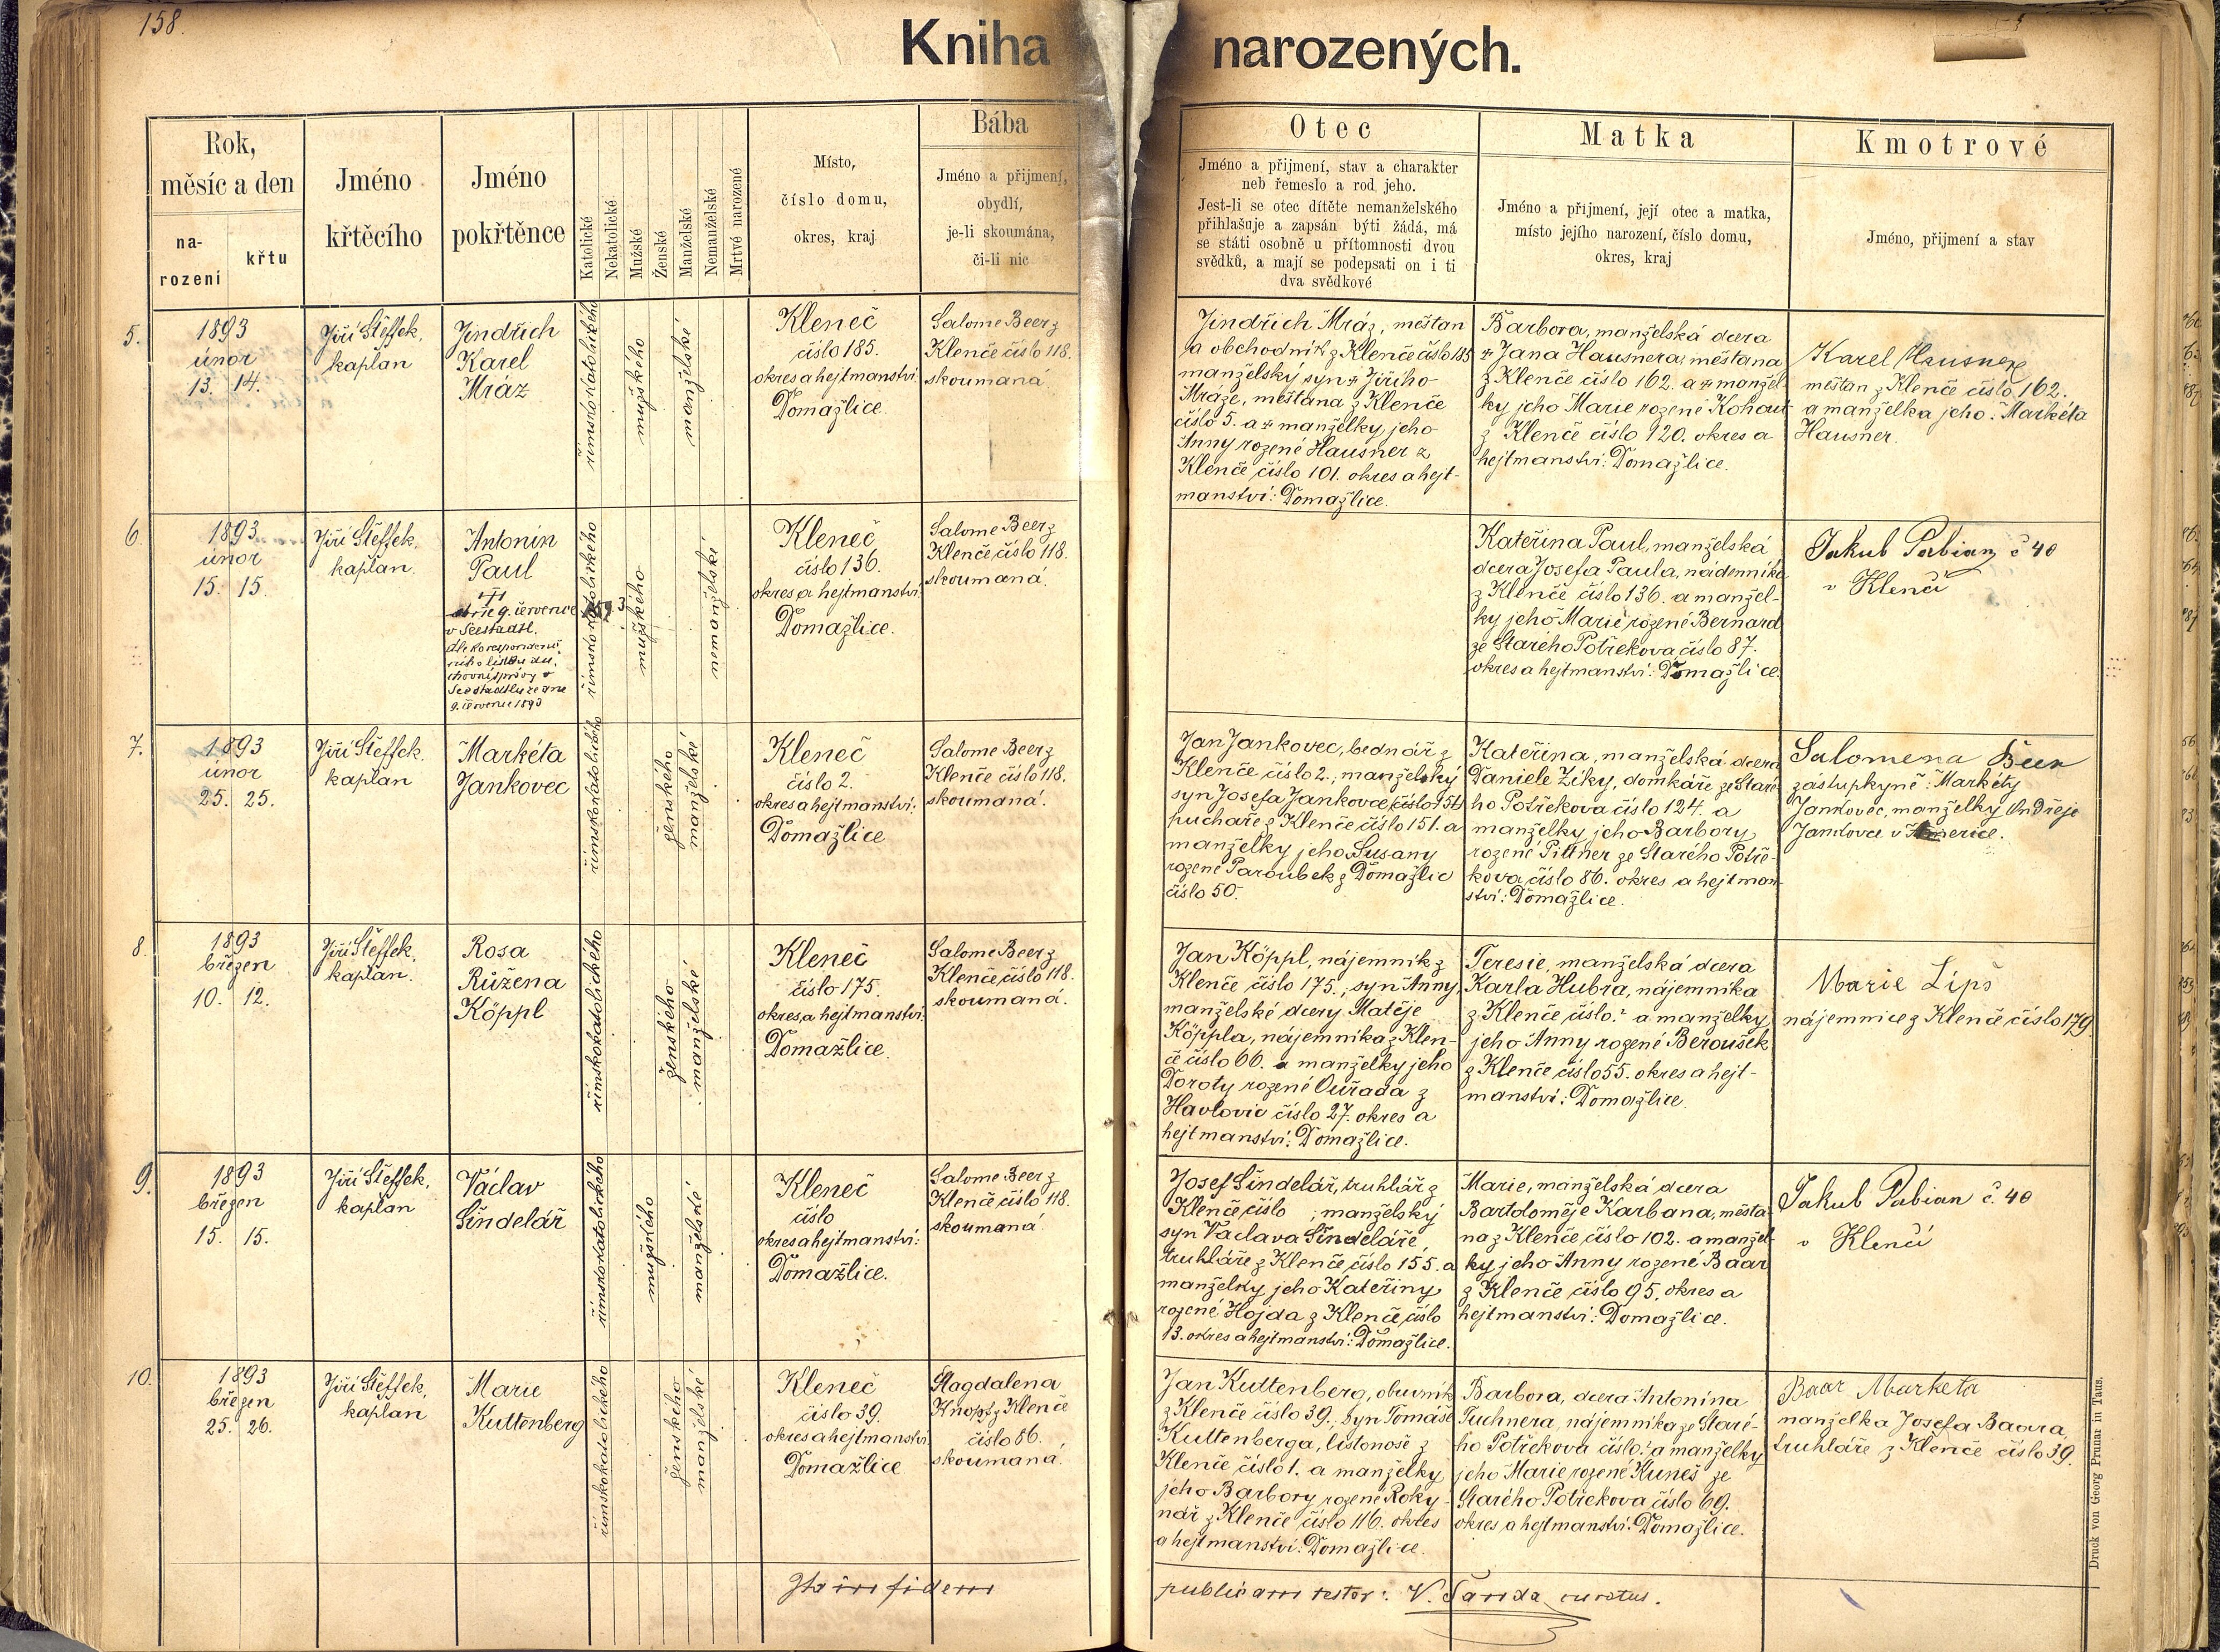 158.
Kniha narozených.
Rok,
měsíc a den
na-
rození
křtu
Jméno
křtěcího
Jméno
pokřtěnce
Katolické
Nekatolické
Mužské
Ženské
Manželské
Nemanželské
Mrtvé narozené
Místo,
číslo domu,
okres, kraj
Bába
Jméno a přijmení,
obydlí,
je-li skoumána,
či-li nic
Otec
Jméno a přijmení, stav a charakter
neb řemeslo a rod jeho.
Jest-li se otec dítěte nemanželského
přihlašuje a zapsán býti žádá, má
se státi osobně u přítomnosti dvou
svědků, a mají se podepsati on i ti
dva svědkové
Matka
Jméno a přijmení, její otec a matka,
místo jejího narození, číslo domu,
okres, kraj
Kmotrové
Jméno, přijmení a stav
5.
1893
únor
13. 14.
Jiří Šteffek,
kaplan
Jindřich
Karel
Mráz
římskokatolického
mužského
manželské
Kleneč
číslo 185.
okres a hejtmanství:
Domažlice.
Salome Beer z
Klenče číslo 118.
skoumaná
Jindřich Mráz, měšťan
a obchodník z Klenče číslo 185
manželský syn Jiřího
Mráze, měštana z Klenče
číslo 5. a manželky jeho
Anny rozené Hausner z
Klenče číslo 101. okres a hejt-
manství: Domažlice.
Barbora, manželská dcera
Jana Hausnera, měštana
z Klenče číslo 162. a manžel-
ky jeho Marie rozené Kohout
z Klenče číslo 120. okres a
hejtmanství: Domažlice.
Karel Hausner
měštan z Klenče číslo 162.
a manželka jeho: Markéta
Hausner.
6
1893
únor
15. 15.
Jiří Šteffek,
kaplan.
Antonín
Paul
9. července 1893
v Seestadtl.
dle korespondenč-
ního lístku du-
chovní správy v
Seestadtlu ze dne
9. července 1893
římskokatolického
mužského
nemanželské
Kleneč
číslo 136.
okres a hejtmanství:
Domažlice.
Salome Beer z
Klenče číslo 118.
skoumaná.
Kateřina Paul, manželská
dcera Josefa Paula, nádenníka
z Klenče číslo 136. a manžel-
ky jeho Marie rozené Bernard
ze Starého Potřekova číslo 87.
okres a hejtmanství: Domažlice.
Jakub Pabian č 40
v Klenči
7.
1893
únor
25. 25.
Jiří Šteffek,
kaplan
Markéta
Jankovec
římskokatolického
ženského
manželské
Kleneč
číslo 2.
okres a hejtmanství:
Domažlice
Salome Beer z
Klenče číslo 118.
skoumaná.
Jan Jankovec, bednář z
Klenče číslo 2., manželský
syn Josefa Jankovce, číslo 151
puchaře z Klenče číslo 151. a
manželky jeho Susany
rozené Paroubek z Domažlic
číslo 50.
Kateřina, manželská dcera
Daniele Žíky, domkáře ze Staré-
ho Potřekova číslo 124. a
manželky jeho Barbory
rozené Pittner ze Starého Potře-
kova číslo 86. okres a hejtman-
ství: Domažlice.
Salomena Beer
zástupkyně: Markéty
Jankovec, manželky Ondřeje
Jankovce v Americe.
8.
1893
březen
10. 12.
Jiří Šteffek,
kaplan.
Rosa
Růžena
Köppl
římskokatolického
ženského
manželské
Kleneč
číslo 175.
okres a hejtmanství:
Domažlice.
Salome Beer z
Klenče číslo 118.
skoumaná.
Jan Köppl, nájemník z
Klenče číslo 175., syn Anny,
manželské dcery Matěje
Köppla, nájemníka z Klen-
če číslo 66. a manželky jeho
Doroty rozené Ouřada z
Havlovic číslo 27. okres a
hejtmanství: Domažlice.
Teresie, manželská dcera
Karla Hubra, nájemníka
z Klenče číslo ? a manželky
jeho Anny rozené Beroušek
z Klenče číslo 55. okres a hejt-
manství: Domažlice.
Marie Lips
nájemnice z Klenče číslo 179.
9.
1893
březen
15. 15.
Jiří Šteffek,
kaplan
Václav
Šindelář
římskokatolického
mužského
manželské
Kleneč
číslo
okres a hejtmanství:
Domažlice.
Salome Beer z
Klenče číslo 118.
skoumaná.
Josef Šindelář, truhlář z
Klenče číslo ; manželský
syn Václava Šindeláře,
truhláře z Klenče číslo 155. a
manželky jeho Kateřiny
rozené Hojda z Klenče číslo
13. okres a hejtmanství: Domažlice.
Marie, manželská dcera
Bartoloměje Karbana, měšťa-
na z Klenče číslo 102. a manžel-
ky jeho Anny rozené Baar
z Klenče číslo 95. okres a
hejtmanství: Domažlice.
Jakub Pabian č. 40
v Klenčí
10.
1893
březen
25. 26.
Jiří Šteffek,
kaplan
Marie
Kuttenberg
římskokatolického
ženského
manželské
Kleneč
číslo 39.
okres a hejtmanství
Domažlice
Magdalena
Knopf z Klenče
číslo 86.
skoumaná.
Jan Kuttenberg, obuvník
z Klenče číslo 39., syn Tomáše
Kuttenberga, listonoše z
Klenče číslo 1. a manželky
jeho Barbory rozené Roky-
nář z Klenče číslo 116. okres
a hejtmanství: Domažlice.
Barbora, dcera Antonína
Tuchnera, nájemníka ze Staré-
ho Potřekova číslo ? a manželky
jeho Marie rozené Kuneš ze
Starého Potřekova číslo 69.
okres a hejtmanství: Domažlice.
Baar Marketa
manželka Josefa Baara,
truhláře z Klenče číslo 39.
Ita in fidem publicam testor: V. Šanda curatus.
Druck von Georg Prunar in Taus.